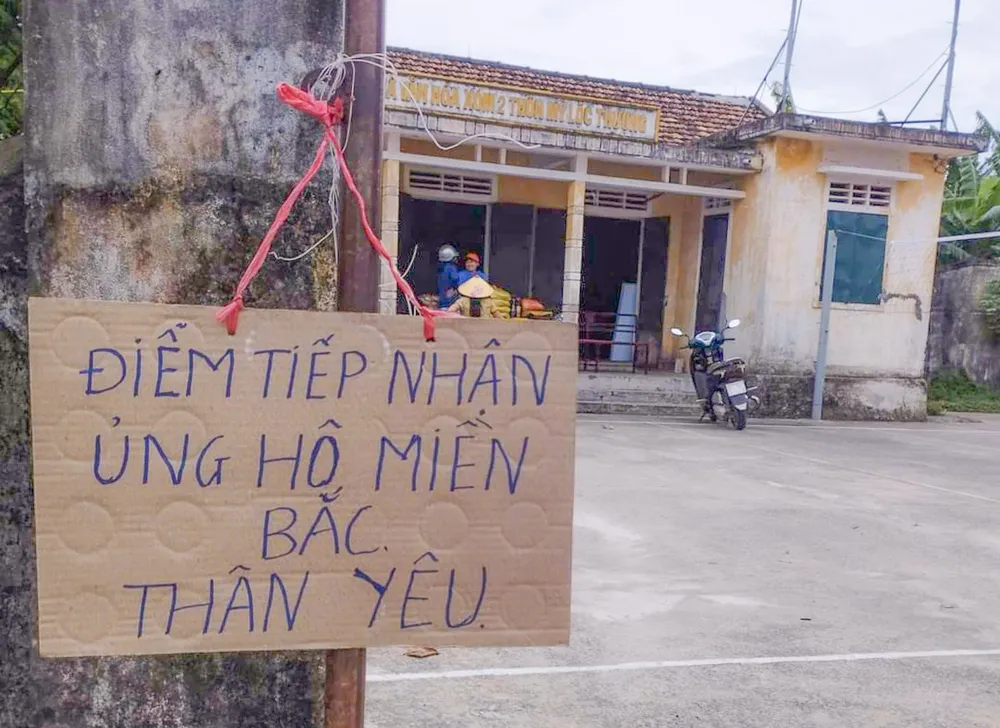 ĐIỂM TIẾP NHẬN
ỦNG HỘ MIỀN
BẮC.
THÂN YÊU.
VĂN HÓA XÓM 2 THÔN MỸ LỘC THƯỢNG